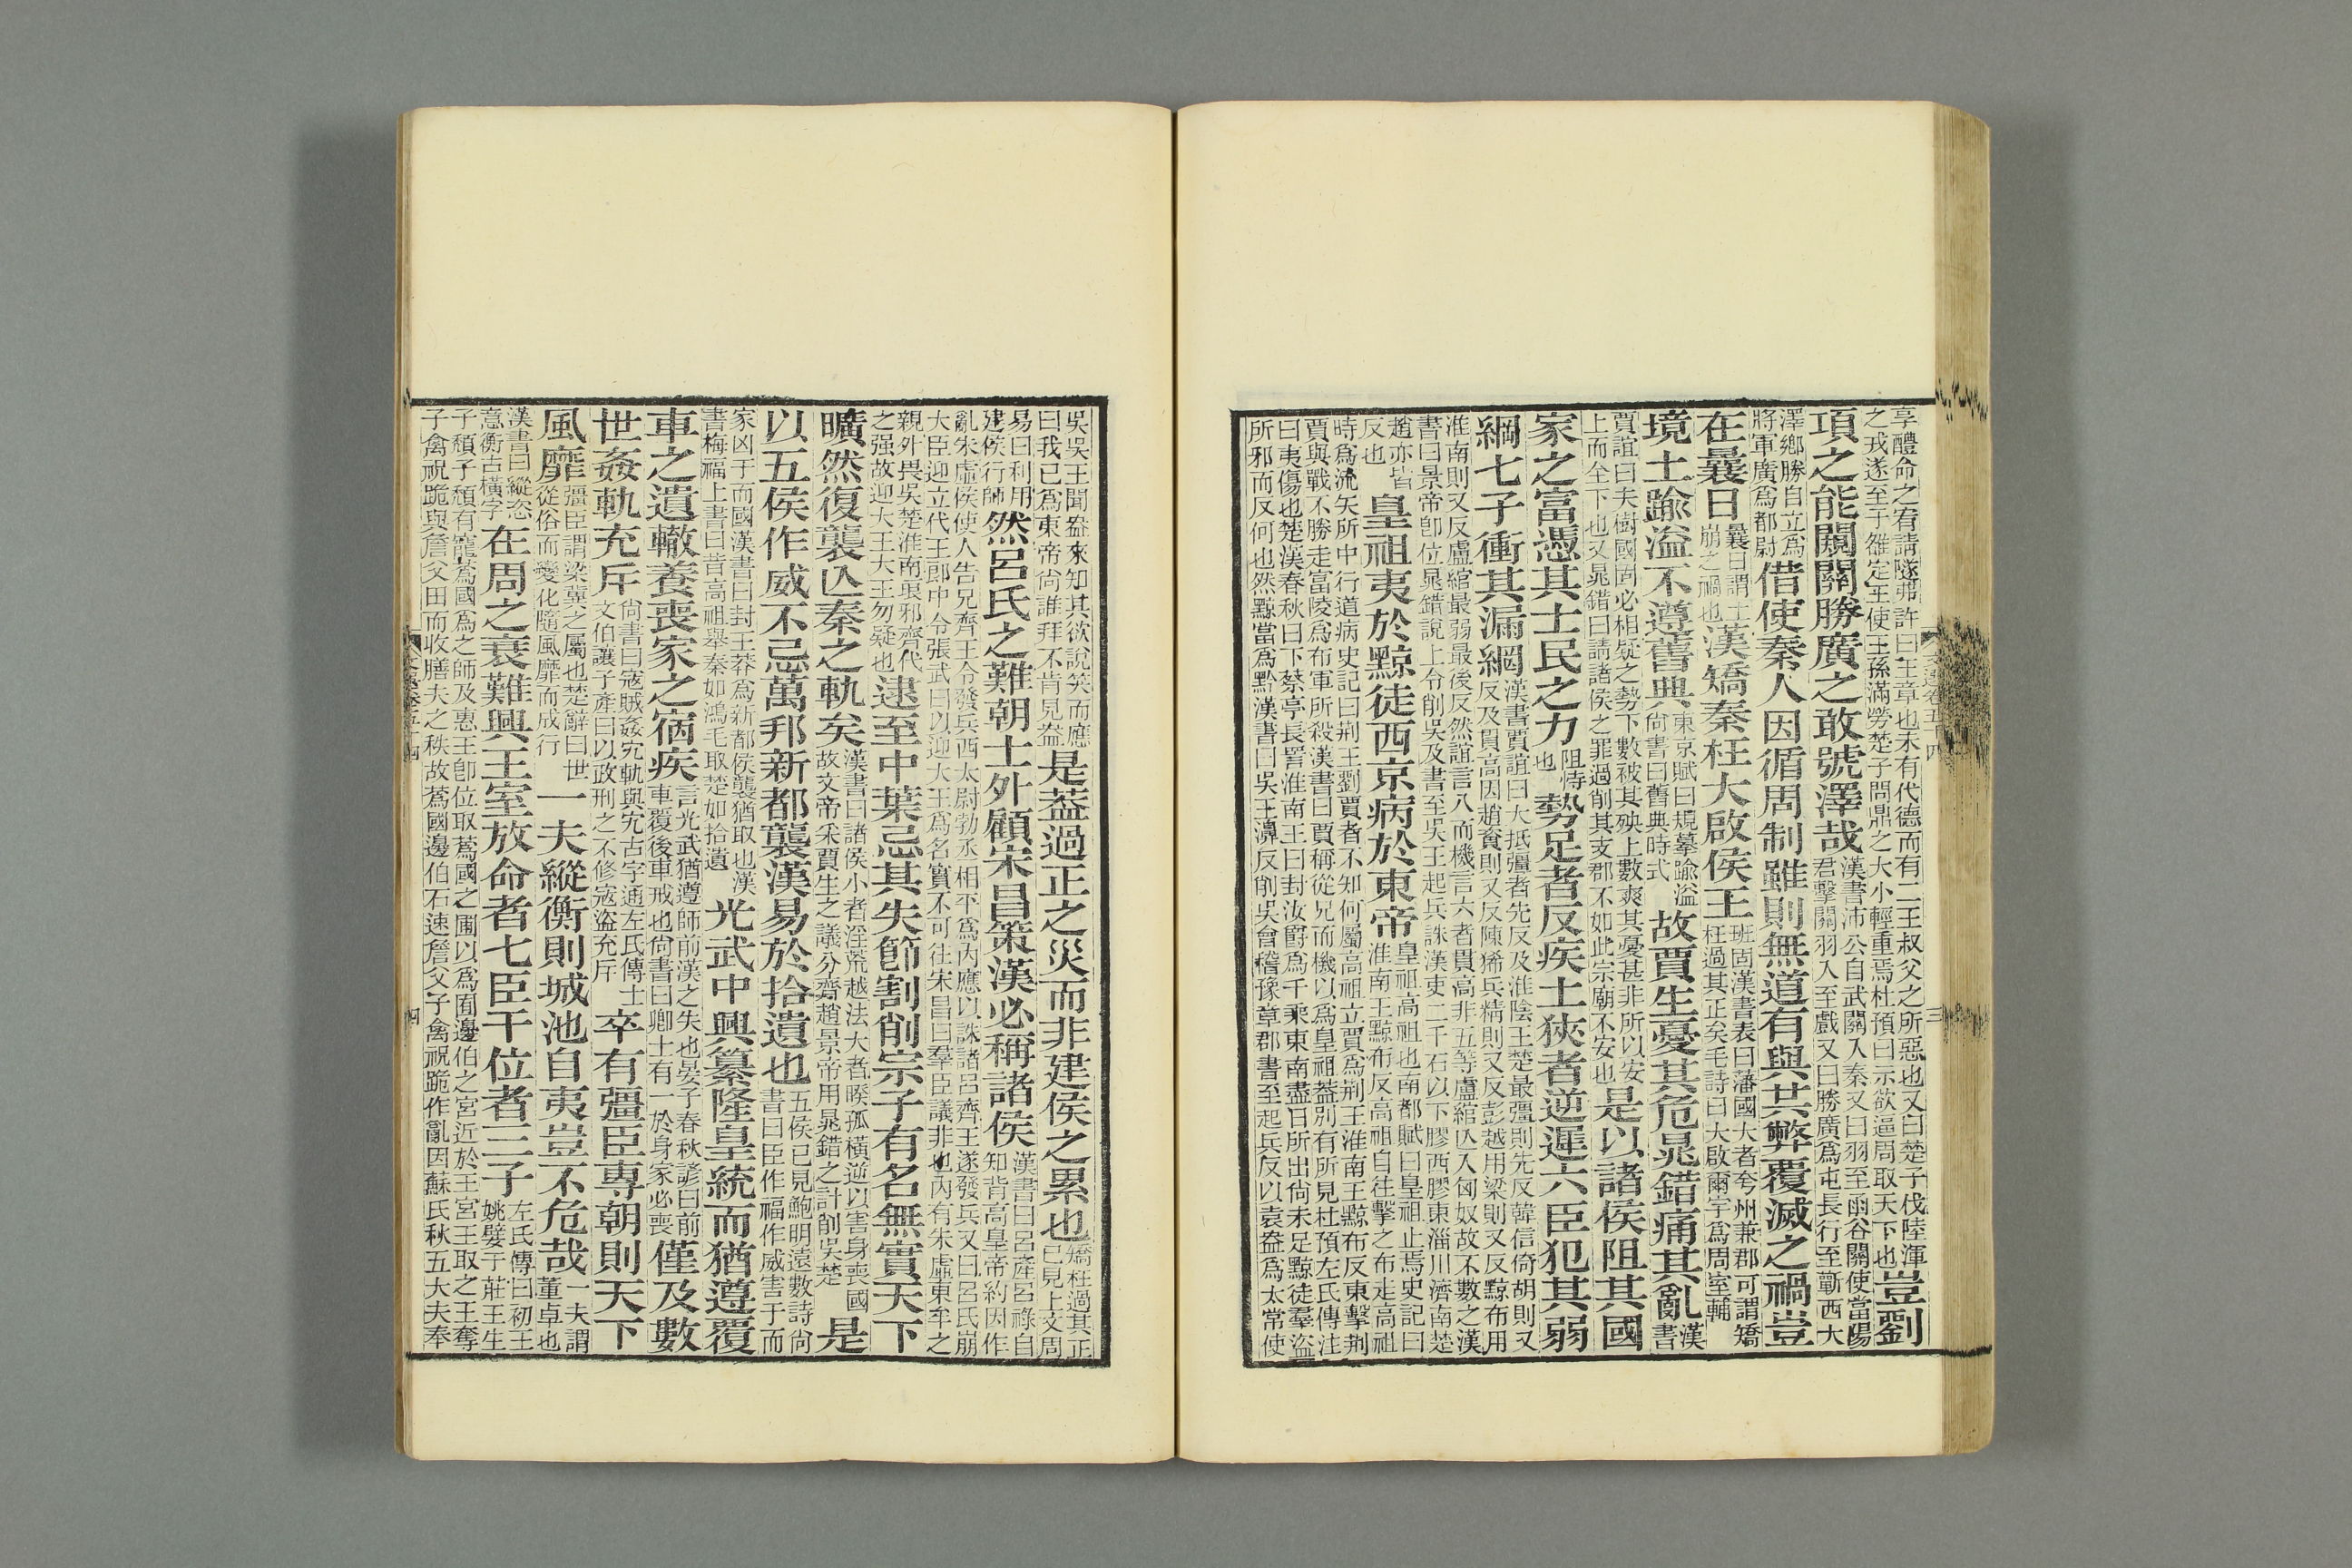 享醴命之宥請隧弗許曰王章也未有代德而有二王叔父之所惡也又曰楚子伐陸渾之戎遂至于雒定王使王孫滿勞楚子問鼎之大小輕重焉杜預曰示欲逼周取天下也豈劉
項之能闚關勝廣之敢號澤哉漢書沛公自武關入秦又曰羽至函谷關使當陽君擊關羽入至戲又曰勝廣爲屯長行至蘄西大
澤鄉勝自立爲將軍廣爲都尉借使秦人因循周制雖則無道有與共弊覆滅之禍豈
在曩日曩日謂土崩之禍也漢矯秦枉大啟侯王班固漢書表曰藩國大者夸州兼郡可謂矯枉過其正矣毛詩曰大啟爾宇爲周室輔
境土踰溢不遵舊典東京賦曰規摹踰溢尚書曰舊典時式故賈生憂其危晁錯痛其亂漢書
賈誼曰夫樹國固必相疑之勢下數被其殃上數爽其憂甚非所以安上而全下也又晁錯曰請諸侯之罪過削其支郡不如此宗廟不安也是以諸侯阻其國
家之富憑其士民之力阻恃也勢足者反疾土狹者逆遲六臣犯其弱
綱七子衝其漏網漢書賈誼曰大抵彊者先反及淮陰王楚最彊則先反韓信倚胡則又反及貫高因趙資則又反陳豨兵精則又反彭越用梁則又反黥布用
淮南則又反盧綰最弱最後反然誼言八而機言六者貫高非五等盧綰亾入匈奴故不數之漢書曰景帝卽位晁錯說上令削吳及書至吳王起兵誅漢吏二千石以下膠西膠東淄川濟南楚
趙亦皆反也皇祖夷於黥徒西京病於東帝皇祖高祖也南都賦曰皇祖止焉史記曰淮南王黥布反高祖自往擊之布走高祖
時爲流矢所中行道病史記曰荆王劉賈者不知何屬高祖立賈爲荆王淮南王黥布反東擊荆賈與戰不勝走富陵爲布軍所殺漢書曰賈稱從兄而機以爲皇祖葢別有所見杜預左氏傳注
曰夷傷也楚漢春秋曰下蔡亭長詈淮南王曰封汝爵爲千乘東南盡日所出尚未足黥徒羣盜所邪而反何也然黥當爲黔漢書曰吳王濞反削吳會稽豫章郡書至起兵反以袁盎爲太常使
吳吳王聞盎來知其欲說笑而應曰我已爲東帝尙誰拜不肯見盎是葢過正之災而非建侯之累也矯枉過其正已見上文周
易曰利用建侯行師然呂氏之難朝士外顧宋昌策漢必稱諸侯漢書曰呂產呂祿自知背高皇帝約因作
亂朱虛侯使人告兄齊王令發兵西太尉勃丞相平爲内應以誅諸呂齊王遂發兵又曰呂氏崩大臣迎立代王郎中令張武曰以迎大王爲名實不可往宋昌曰羣臣議非也内有朱虛東牟之
親外畏吳楚淮南琅邪齊代之强故迎大王大王勿疑也逮至中葉忌其失節割削宗子有名無實天下
曠然復襲亾秦之軌矣漢書曰諸侯小者淫荒越法大者睽孤橫逆以害身喪國故文帝采賈生之議分齊趙景帝用晁錯之計削吳楚是
以五侯作威不忌萬邦新都襲漢易於拾遺也五侯已見鮑明遠數詩尙書曰臣作福作威害于而
家凶于而國漢書曰封王莽爲新都侯襲猶取也漢書梅福上書曰昔高祖舉秦如鴻毛取楚如拾遺光武中興纂隆皇統而猶遵覆
車之遺轍養喪家之宿疾言光武猶遵師前漢之失也晏子春秋諺曰前車覆後車戒也尙書曰卿士有一於身家必喪僅及數
世姦軌充斥尙書曰寇賊姦宄軌與宄古字通左氏傳士文伯讓子產曰以政刑之不修寇盜充斥卒有彊臣專朝則天下
風靡彊臣謂梁冀之屬也楚辭曰世從俗而變化隨風靡而成行一夫縱衡則城池自夷豈不危哉一夫謂董卓也
漢書曰縱恣意衡古橫字在周之衰難興王室放命者七臣干位者三子左氏傳曰初王姚嬖于莊王生
子頹子頹有寵蒍國爲之師及惠王卽位取蒍國之圃以爲囿邊伯之宮近於王宮王取之王奪子禽祝跪與詹父田而收膳夫之秩故蒍國邊伯石速詹父子禽祝跪作亂因蘇氏秋五大夫奉